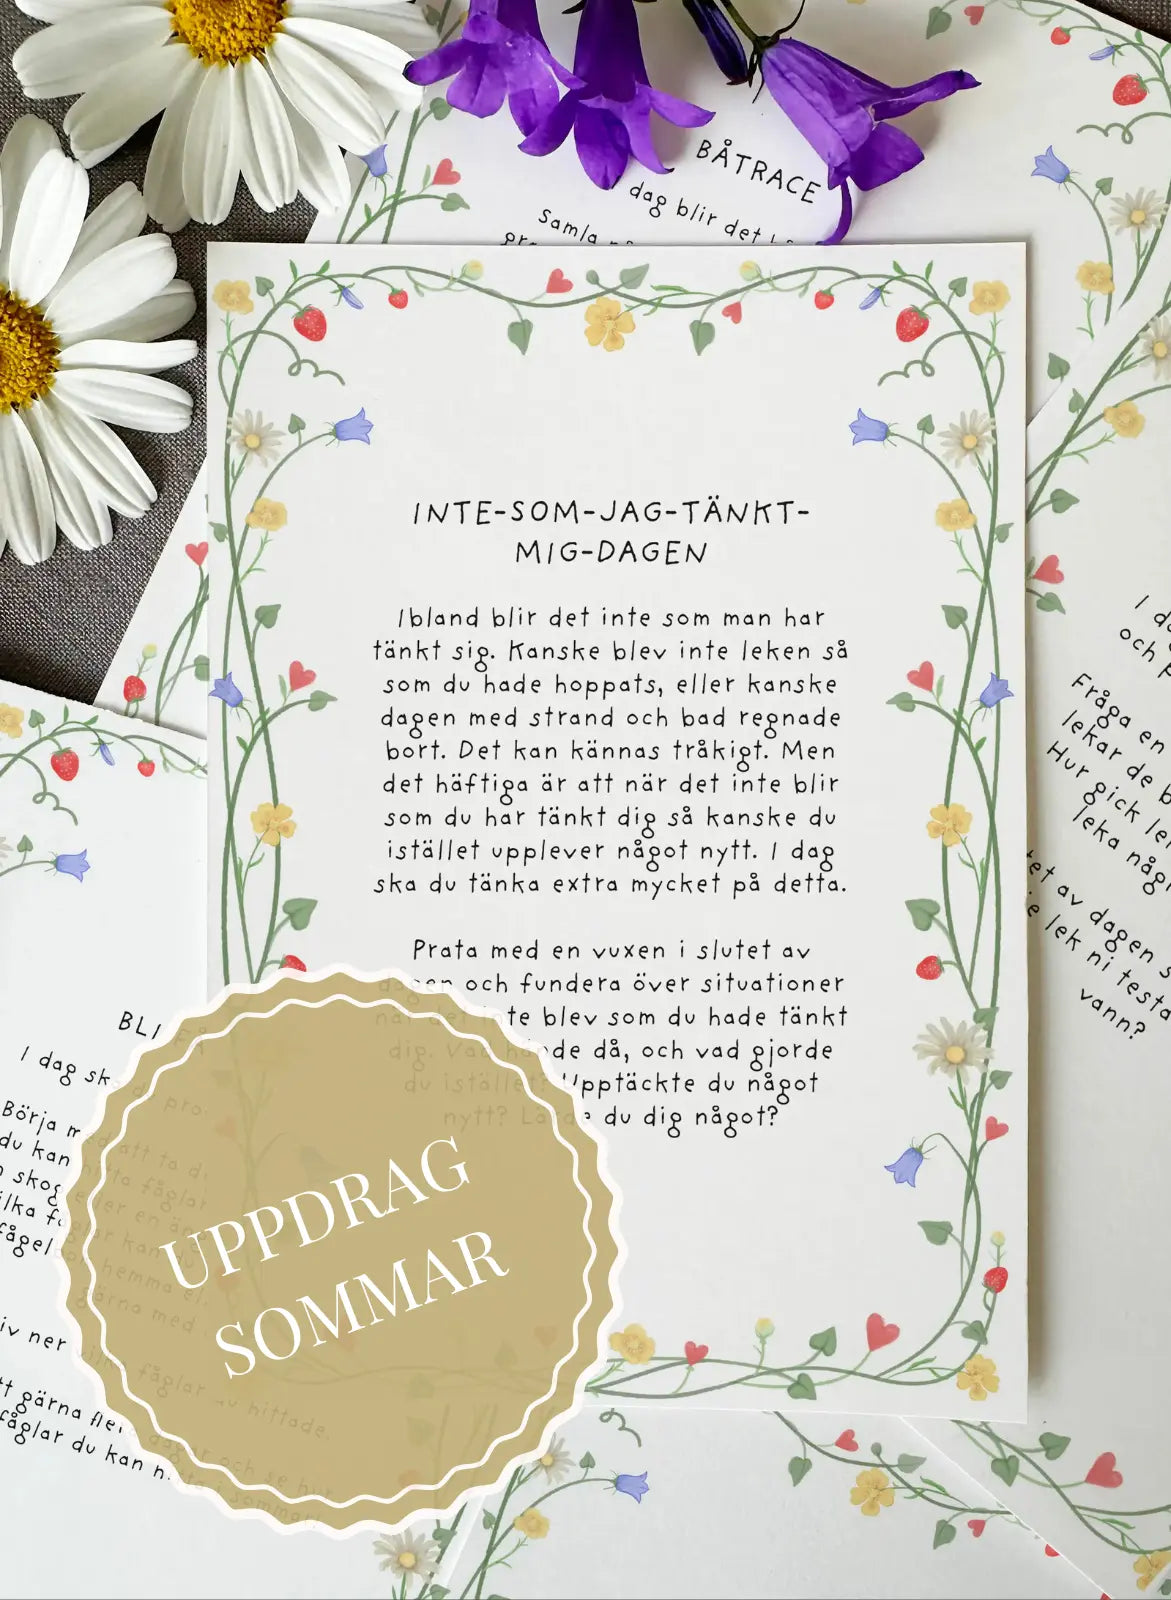 BÅTRACE
dag blir det
Samla
INTE-SOM-JAG-TÄNKT-
MIG-DAGEN
Ibland blir det inte som man har
tänkt sig. Kanske blev inte leken så
som du hade hoppats, eller kanske
dagen med strand och bad regnade
bort. Det kan kännas tråkigt. Men
det häftiga är att när det inte blir
som du har tänkt dig så kanske du
istället upplever något nytt. I dag
ska du tänka extra mycket på detta.
Prata med en vuxen i slutet av
dagen och fundera över situationer
när det inte blev som du hade tänkt
dig. Vad hände då, och vad gjorde
du istället? Upptäckte du något
nytt? Lärde du dig något?
I
och
Fråga en
lekar de
Hur gick
leka
av dagen
lek ni
vann?
BLI
I dag
Börja med att ta
du kan hitta fåglar
skog eller en
fåglar kan du
hemma
gärna med
ner vilka fåglar du hittade.
gärna flera dagar och se hur
fåglar du kan hitta i sommar!
UPPDRAG
SOMMAR